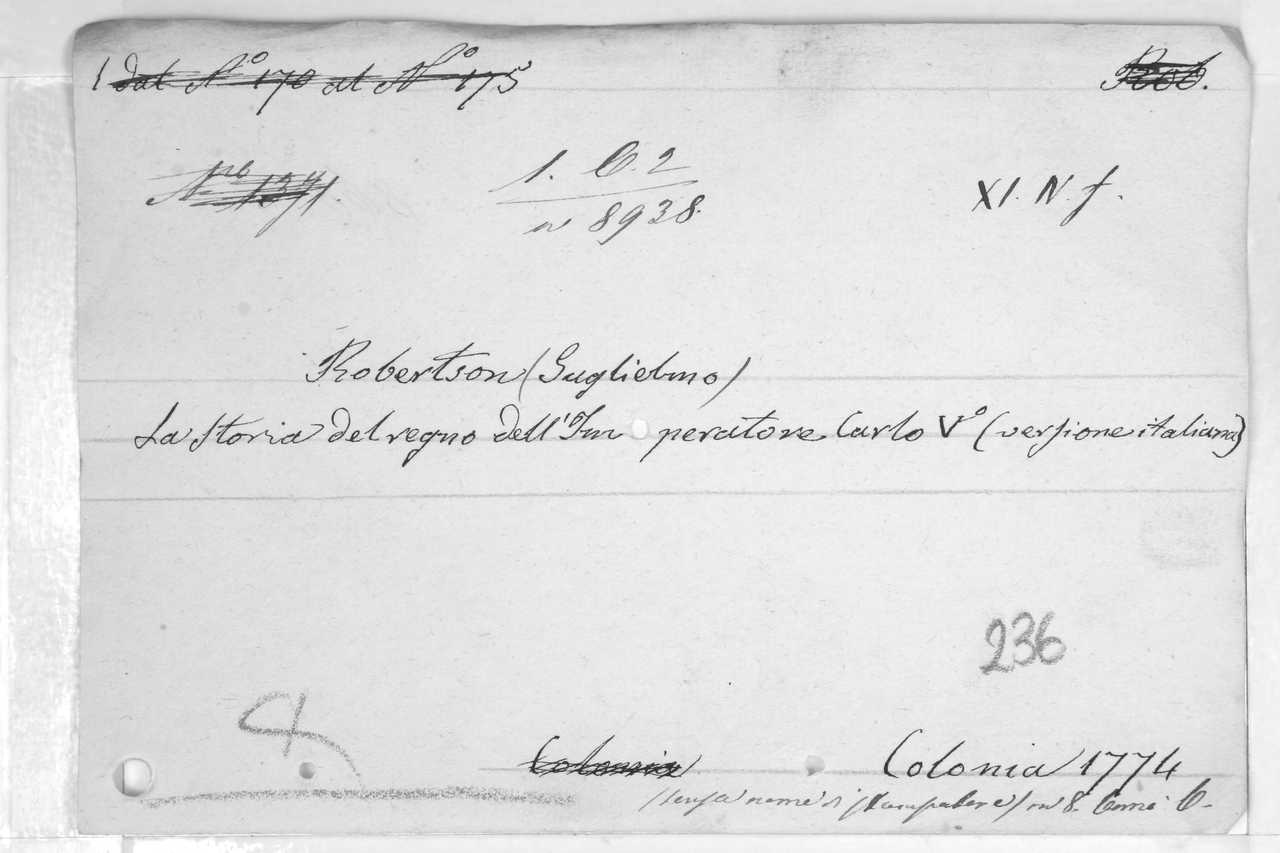 dal N° 170 al N° 175
Rob.
Nro 1371.
1. C. 2
n 8938.
XI. N. f.
Robertson (Guglielmo)
La storia del regno dell'Im peratore Carlo V° (versione italiana)
236
Colonia
Colonia 1774
(senza nome di stampatore) in 8. tomi 6.